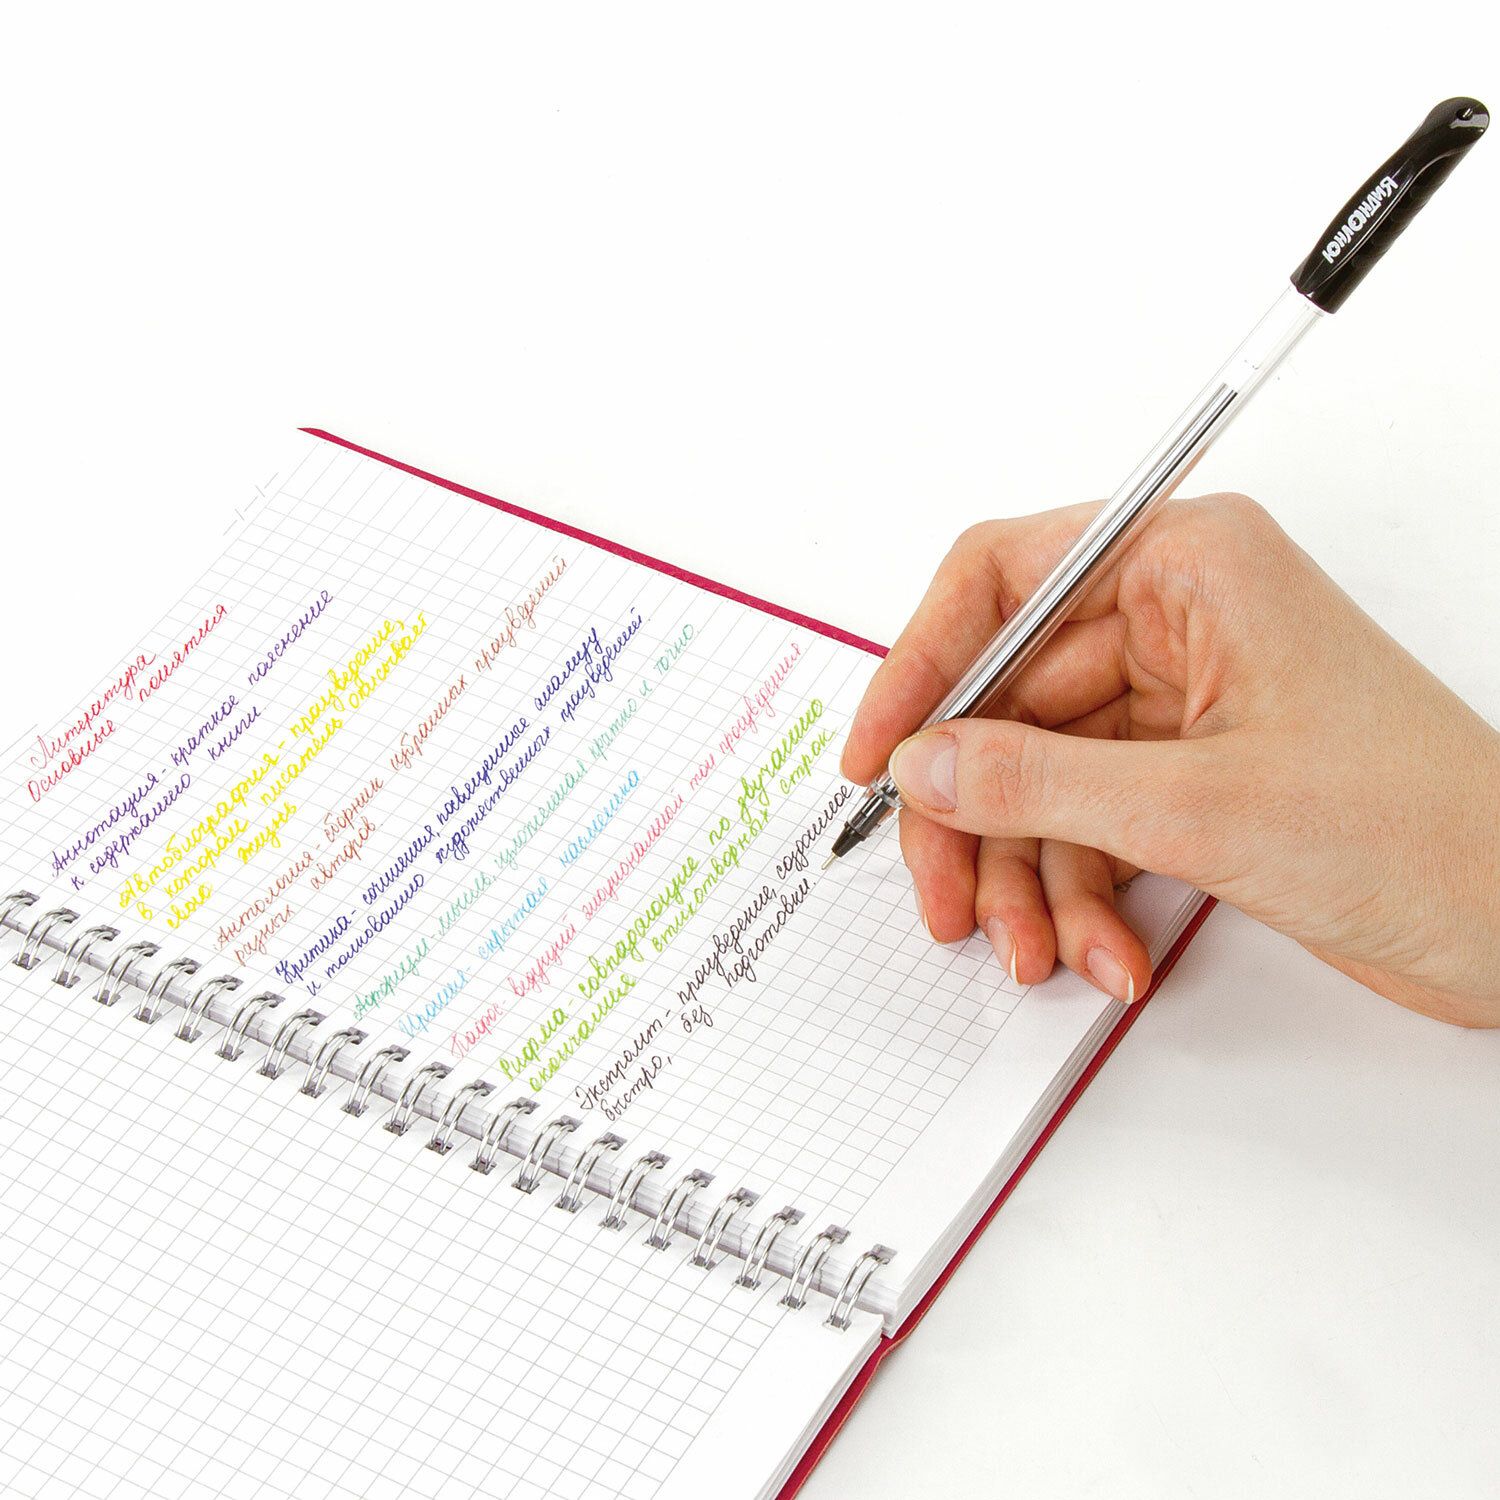 Литература
Основные понятия
Аннотация - краткое пояснение
к содержанию книги.
Автобиография - произведение,
в котором писатель описывает
свою жизнь
Антология - сборник избранных произведений
разных авторов.
Критика - сочинения, посвещенные анализу
и толкованию художественных произведений.
Афоризм - мысль, изложенная кратко и точно.
Ирония - скрытая насмешка
Пафос - ведущий эмоциональный тон произведения
Рифма - совпадающие по звучанию
окончания стихотворных строк.
Экспромт - произведения, созданное
быстро, без подготовки.
ЮНЛАНДИЯ